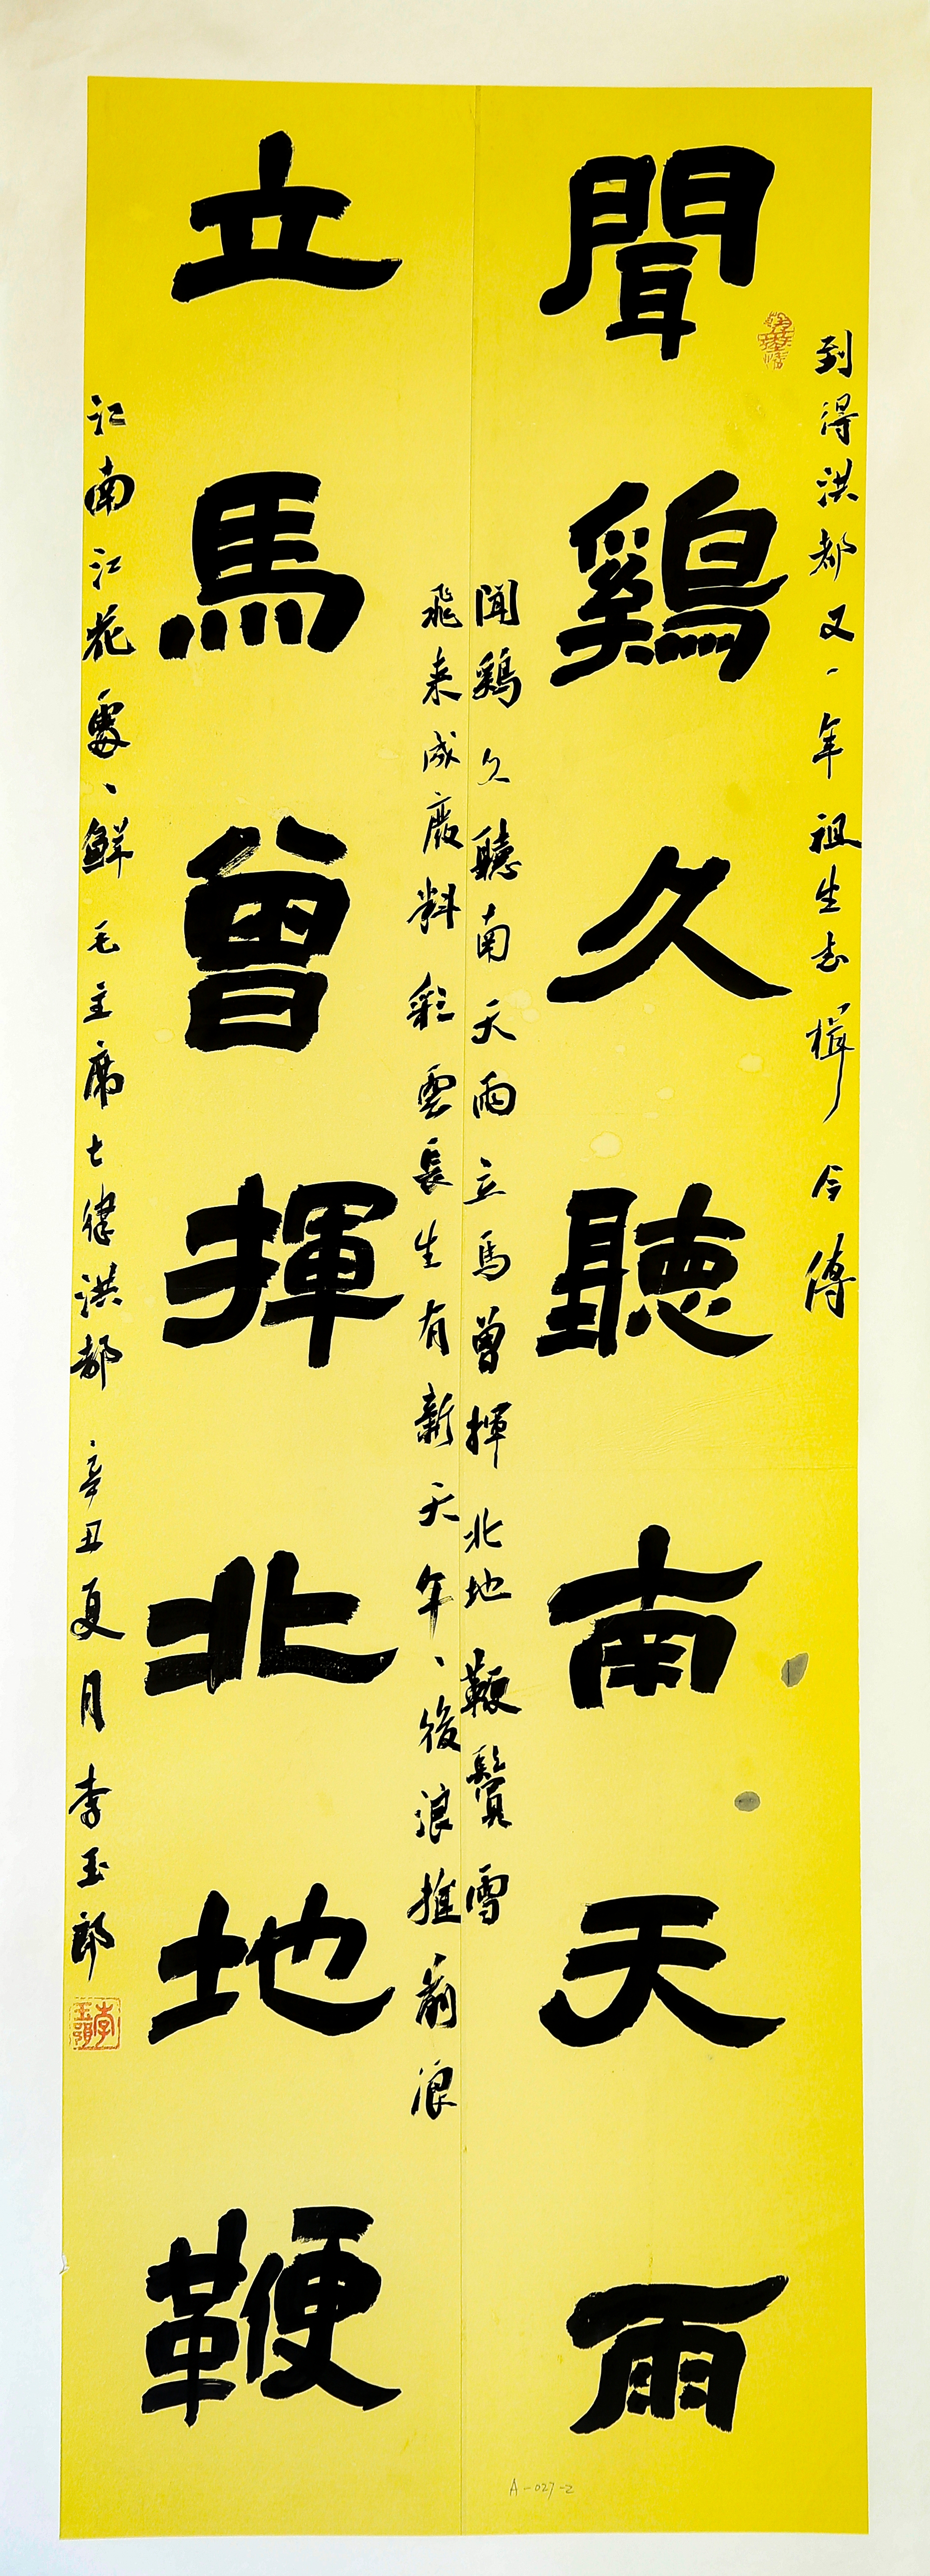 到得洪都又一年祖生击楫今傳
聞鷄久聽南天雨
聞鷄久聽南天雨立馬曾揮北地鞭鬢雪
飛来成廢料彩雲長生有新天年、後浪推前浪
立馬曾揮北地鞭
江南江花處、鮮 毛主席七律洪都 辛丑夏月李玉郎
A-027-2